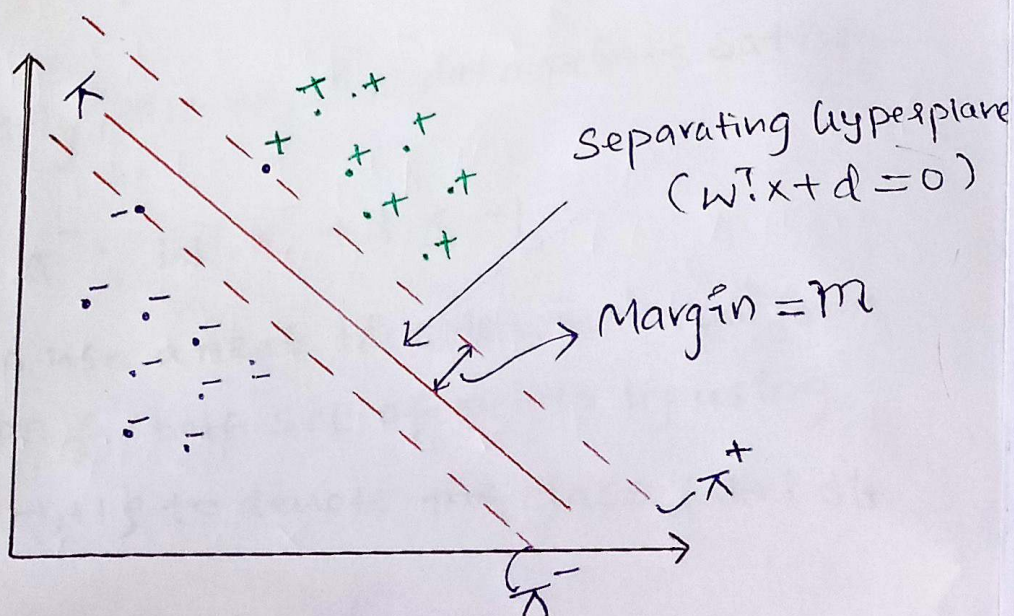 π
Separating hyperplane
(wᵀx+d=0)
Margin = m
π⁺
π⁻